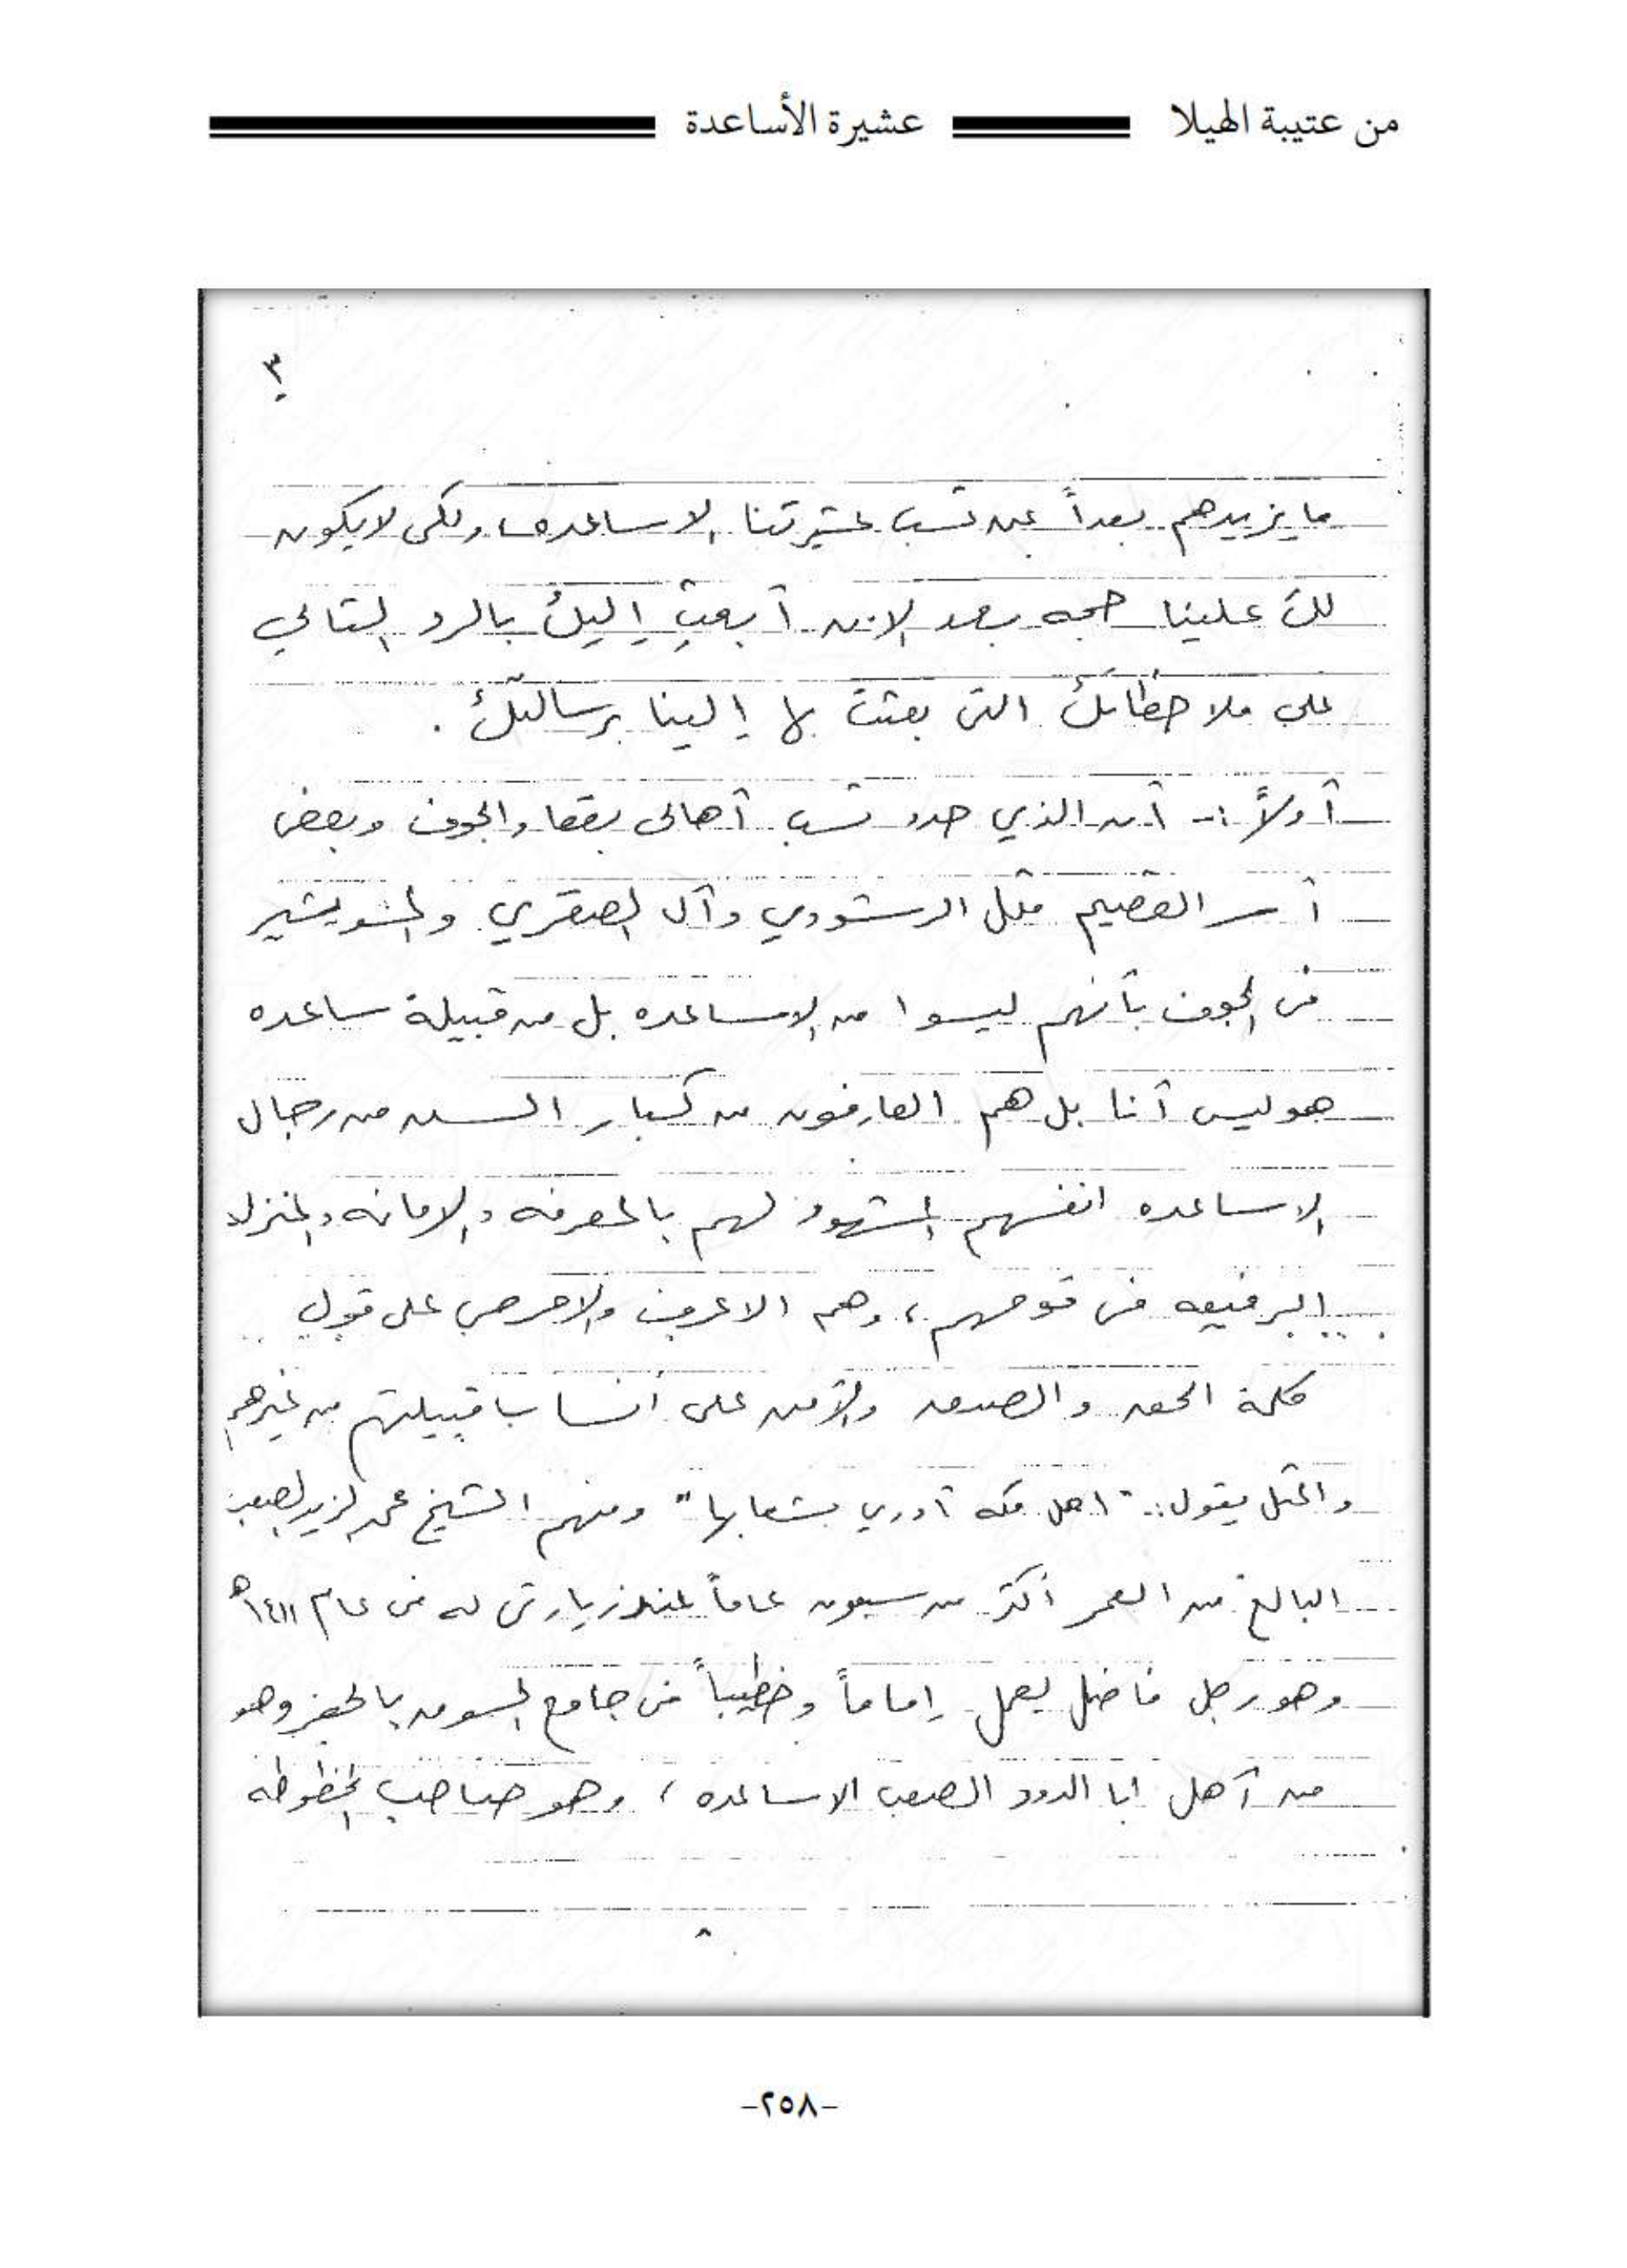 من عتيبة الهيلا
عشيرة الأساعدة
٣
ما يزيدهم بعداً عن نسب عشيرتنا الاساعده، ولكى لا يكون
لك علينا حجه بعد الان أبعث إليك بالرد التالي
على ملاحظاتك التى بعثت بها إلينا برسالتك .
أولاً :- أن الذي حدد نسب أهالى بقعا والجوف وبعض
أسر القصيم مثل الرشودي وآل الصقري والمشويشير
فى الجوف بأنهم ليسوا من الاساعده بل من قبيلة ساعده
هو ليس أنا بل هم العارفون من كبار السن من رجال
الاساعده انفسهم المشهود لهم بالمعرفه والامانه والمنزله
الرفيعه فى قومهم، وهم الاعرف والاحرص على قول
كلمة الحق والصدق والأمن على أنساب قبيلتهم من غيرهم
والمثل يقول :- "اهل مكه أدري بشعابها" ومنهم الشيخ
البالغ من العمر أكثر من سبعون عاماً عند زيارتى له فى عام ١٤١١ه
وهو رجل فاضل يعمل إماماً وخطيباً فى جامع السوق بالحفر وهو
من أهل ابا الدود الصعب الاساعده، وهو صاحب المخطوطه
-٢٥٨-